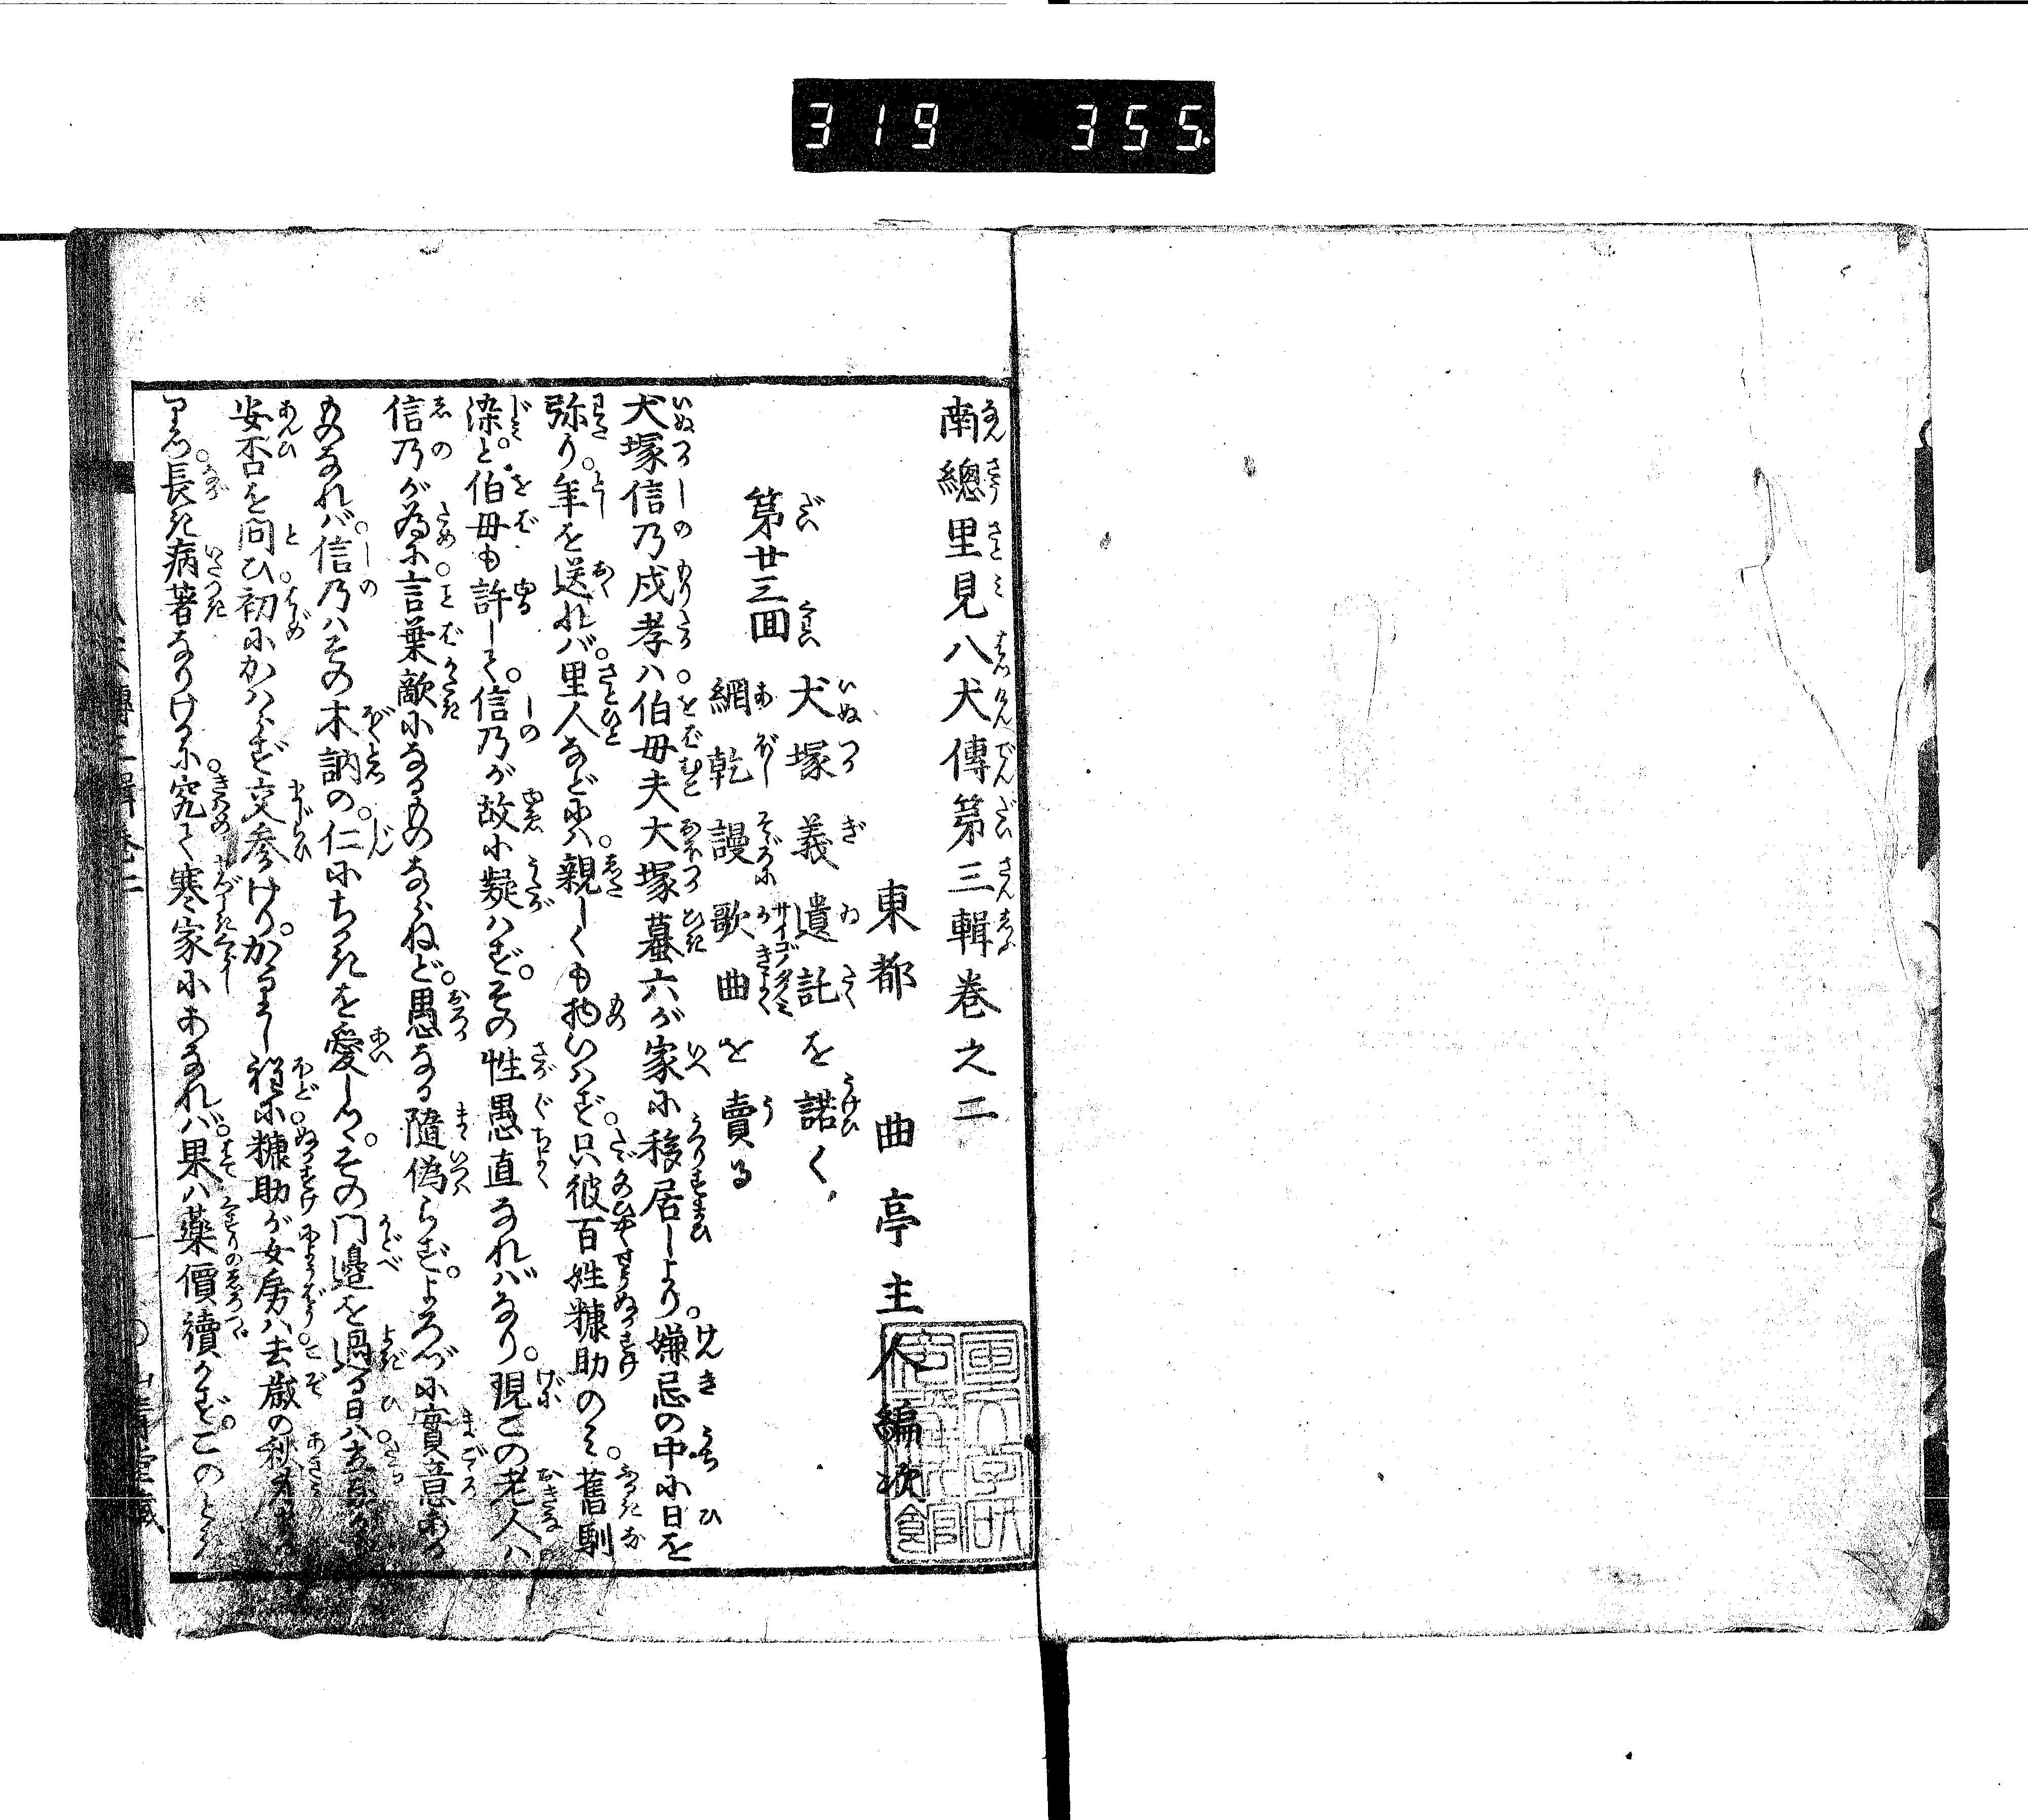 319 355
南總里見八犬傳第三輯卷之二
東都 曲亭主人編次
第廿三回
犬塚義遺託を諾く
網乾謾歌曲を賣る
犬塚信乃戍孝ハ伯母夫大塚蟇六が家に移居しより。嫌忌の中に日を
弥り。年を送れバ。里人などにハ。親しくも物いはず。只彼百姓糠助のミ。舊馴
染と。伯母も許して。信乃が故に疑ハず。その性愚直なれバなり。現この老人ハ
信乃が為に。言葉敵になるものならねど。愚なる隨偽らず。よろづに實意ある
ものなれバ。信乃ハその木訥の。仁にちかきを愛しつゝ。その門邊を過る日ハ
安否を問ひ。初にかハらず交参けり。かゝりし程に。糠助が女房ハ。去歳の秋
りしが。長き病著なりけるに。究て寒家にあなれバ。果ハ藥價續かず。このとき